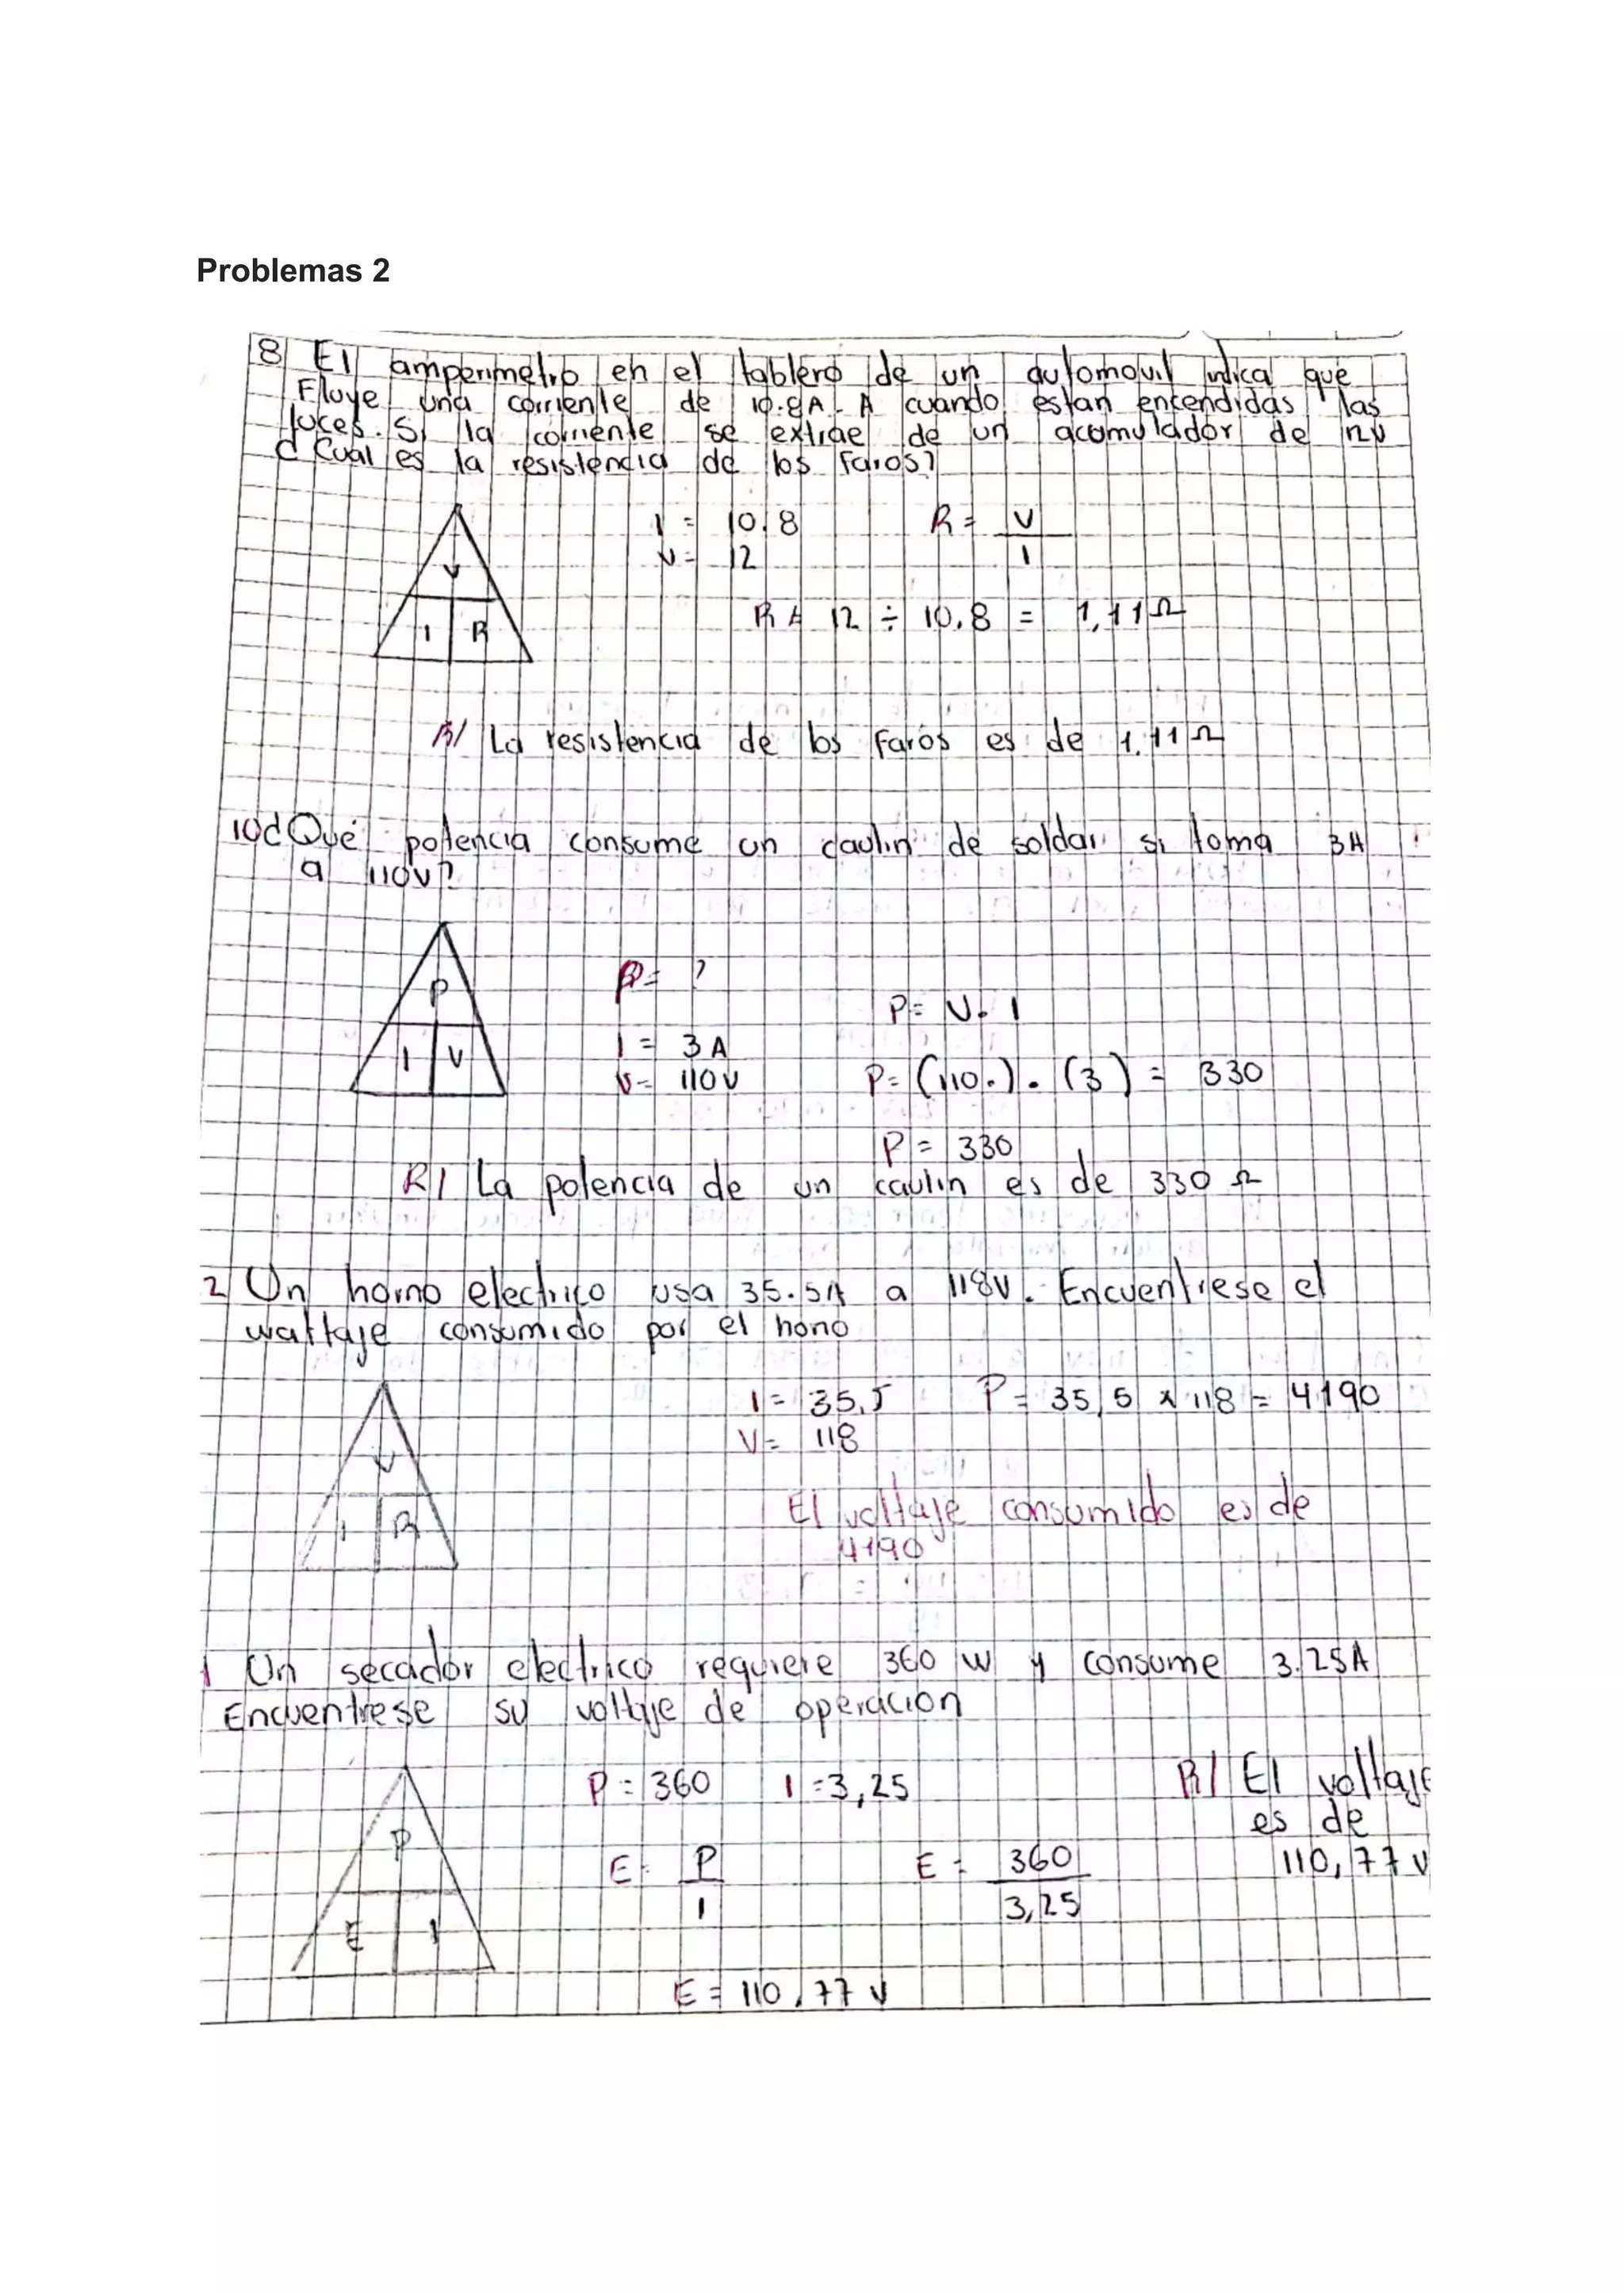 Problemas 2
8 El amperimetro en el tablero de un automovil indica que
Fluye una corriente de 10.8A - A cuando estan encendidas las
luces. Si la corriente se extrae de un acomulador de 12V
¿Cual es la resistencia de los faros?
I = 10.8 R = V
V = 12 I
V
I R
R = 12 ÷ 10.8 = 1,11Ω
R/ La resistencia de los faros es de 1.11Ω
10 ¿Qué potencia consume un caulin de soldar si toma 3A
a 110v?
P = ?
P
P = V. I
I = 3A
I V
V = 110V P = (110.). (3) = 330
P = 330
R/ La potencia de un caulin es de 330 Ω
2 Un horno electrico usa 35.5A a 118V. Encuentrese el
wattaje consumido por el hono
I = 35,5 P = 35,5 x 118 = 4190
V = 118
V
I R
El voltaje consumido es de
4190
1 Un secador electrico requiere 360 W y consume 3.25A
Encuentrese su voltaje de operacion
P = 360 I = 3,25 R/ El voltaje
es de
P
E = P E = 360 110,77 V
I 3,25
E I
E = 110,77 V